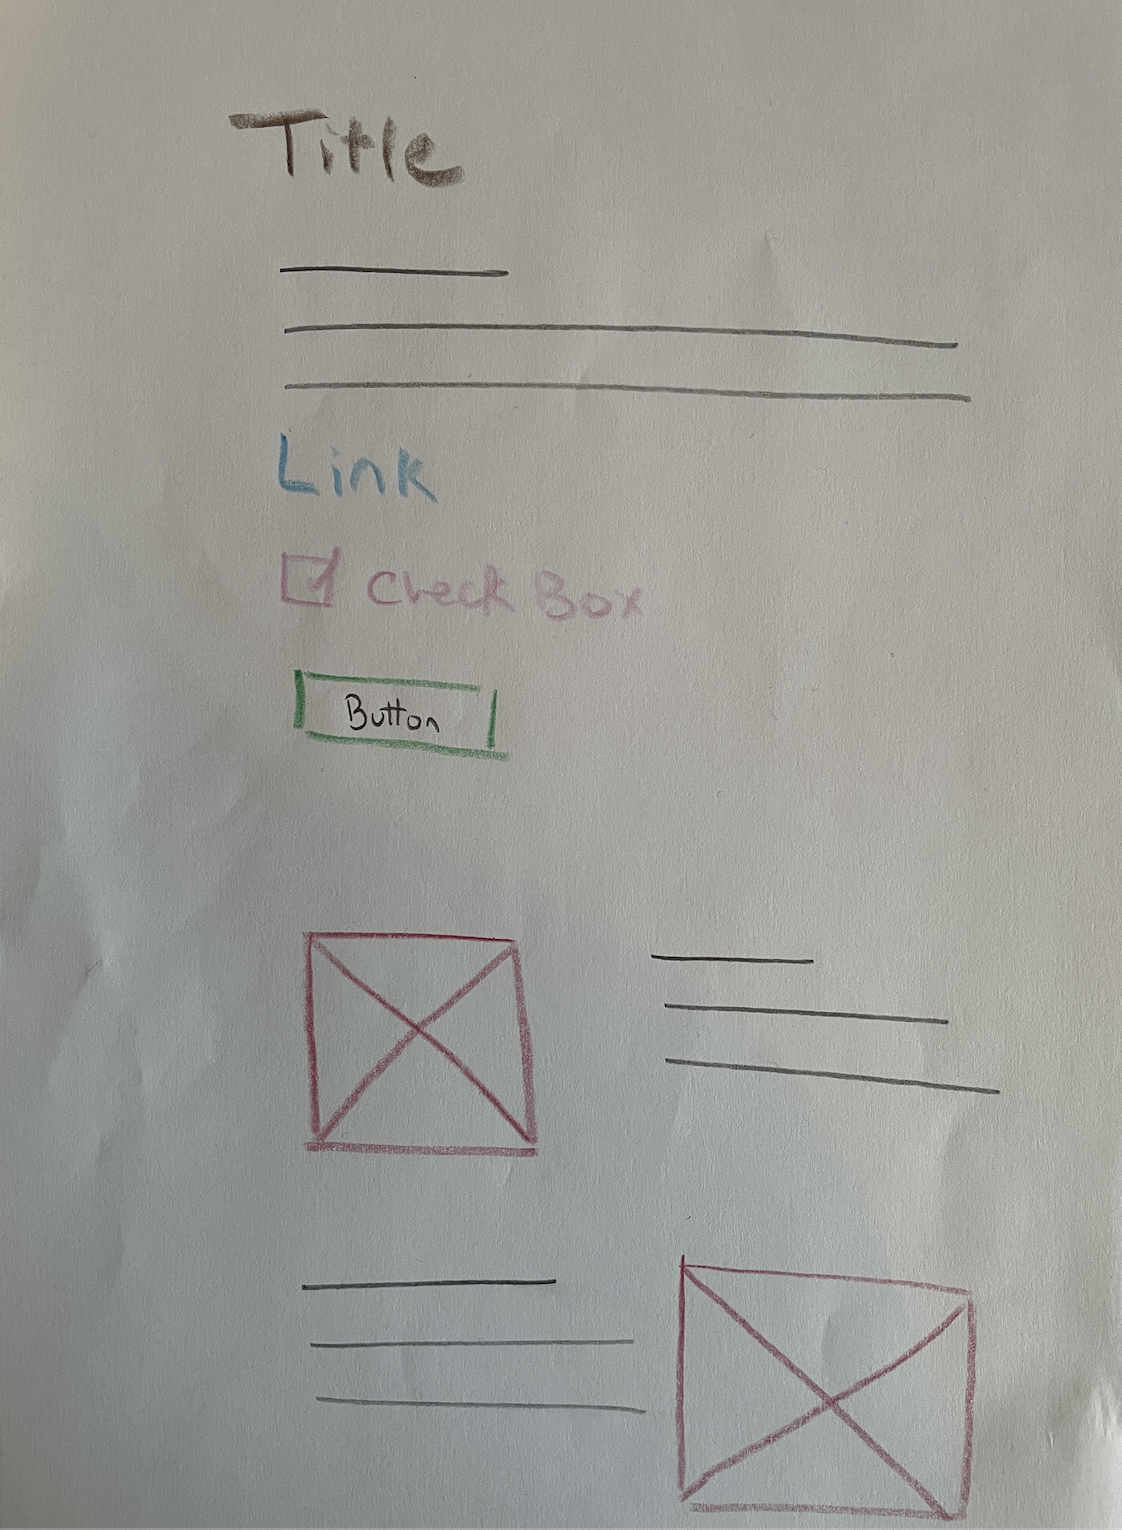 Title
Link
Check Box
Button